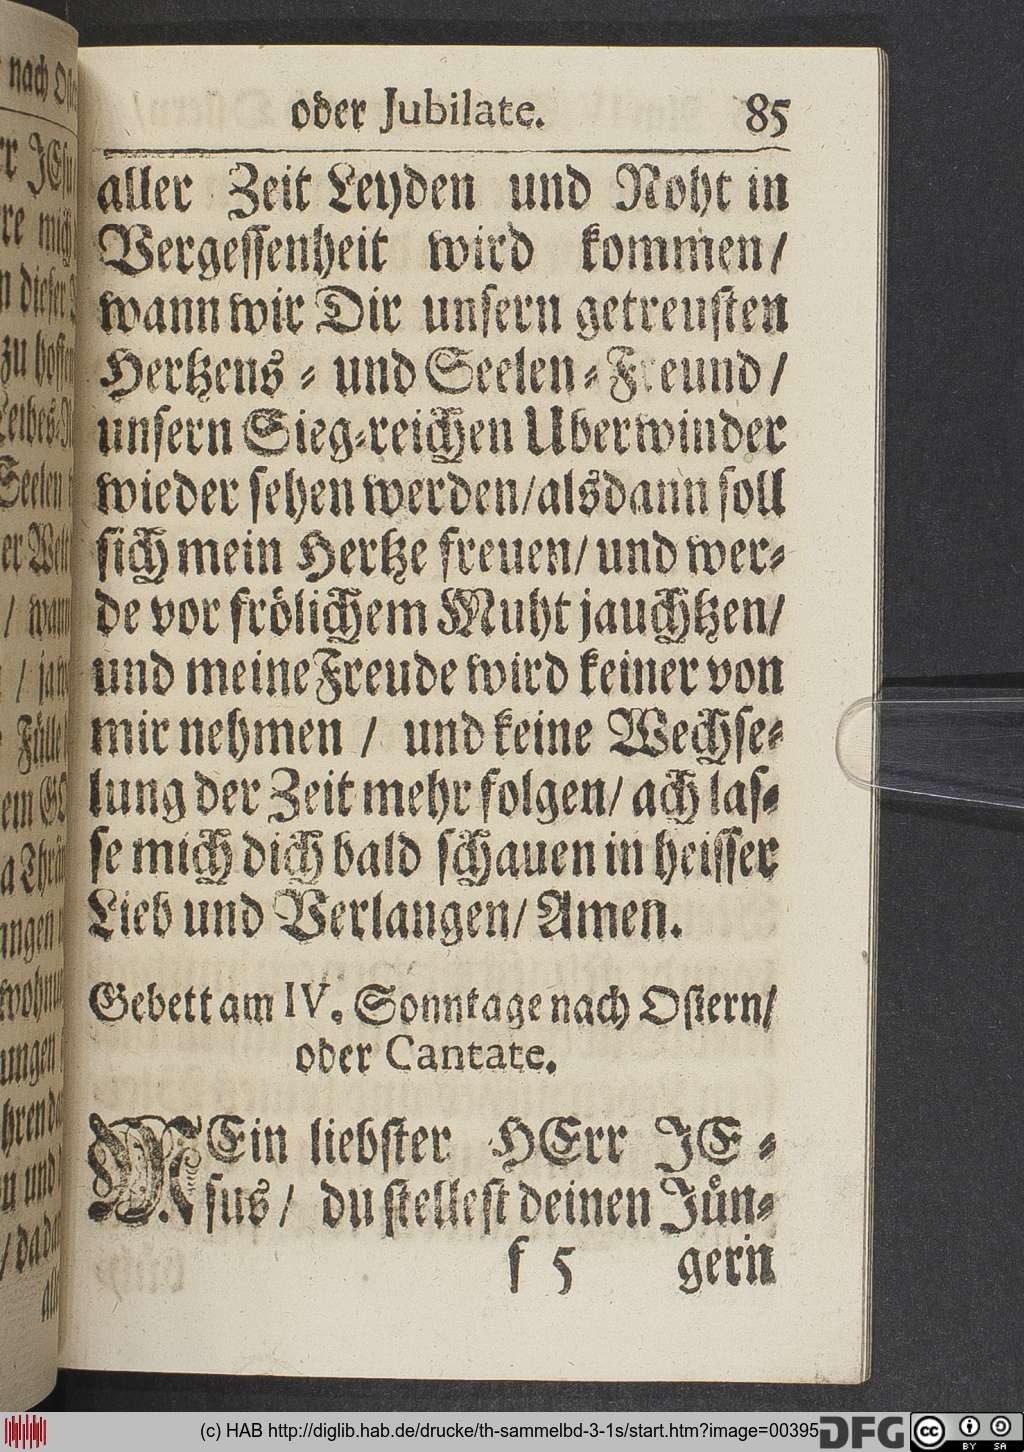 oder Jubilate. 85
aller Zeit Leyden und Noht in
Vergessenheit wird kommen/
wann wir Dir unsern getreusten
Hertzens- und Seelen-Freund/
unsern Sieg-reichen Uberwinder
wieder sehen werden/alsdann soll
sich mein Hertze freuen/ und wer-
de vor frölichem Muht jauchtzen/
und meine Freude wird keiner von
mir nehmen / und keine Wechse-
lung der Zeit mehr folgen/ ach las-
se mich dich bald schauen in heisser
Lieb und Verlangen/ Amen.
Gebett am IV. Sonntage nach Ostern/
oder Cantate.
MEin liebster HErr JE-
sus/ du stellest deinen Jün-
f 5 gern
(c) HAB http://diglib.hab.de/drucke/th-sammelbd-3-1s/start.htm?image=00395
DFG
cc BY SA